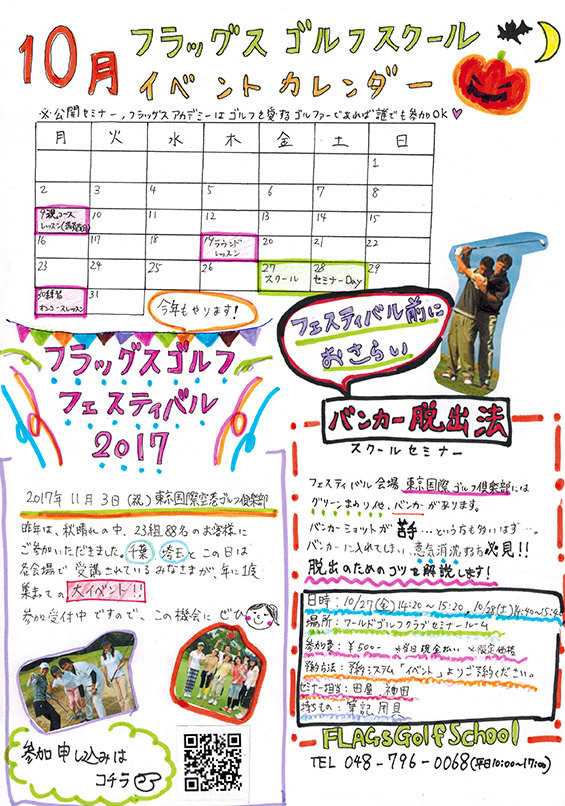 10月 フラッグス ゴルフスクール
イベント カレンダー
※公開セミナー,フラッグスアカデミーはゴルフを愛するゴルファーであれば誰でも参加OK♥
月 火 水 木 金 土 日
1
2 3 4 5 6 7 8
9 親コース 10 11 12 13 14 15
レッスン
16 17 18 19 ラウンド 20 21 22
レッスン
23 24 25 26 27 28 29
スクール セミナーDay
30 31
オンコースレッスン
今年もやります!
フラッグスゴルフ
フェスティバル
2017
2017年11月3日(祝)東京国際空港ゴルフ倶楽部
昨年は、秋晴れの中、23組88名のお客様に
ご参加いただきました。千葉 埼玉とこの日は
各会場で受講されているみなさまが、年に1度
集まっての 大イベント!!
参加受付中ですので、この機会に ぜひ
参加申し込みは
コチラ
フェスティバル前に
おさらい
バンカー脱出法
スクールセミナー
フェスティバル会場 東京国際ゴルフ倶楽部には
グリーンまわり他、バンカーがあります。
バンカーショットが 苦手…という方も多いはず…。
バンカーに入れてしまい、意気消沈する方必見!!
脱出のためのコツを解説します!
日時:10/27(金)14:20~15:20、10/28(土)14:40~15:40
場所:ワールドゴルフクラブセミナールーム
参加費:¥500- ※当日現金払い ※限定価格
予約方法:予約システム「イベント」よりご予約ください。
セミナー担当:田屋 神田
持ちもの:筆記用具
FLAGs Golf School
TEL 048-796-0068(平日10:00~17:00)